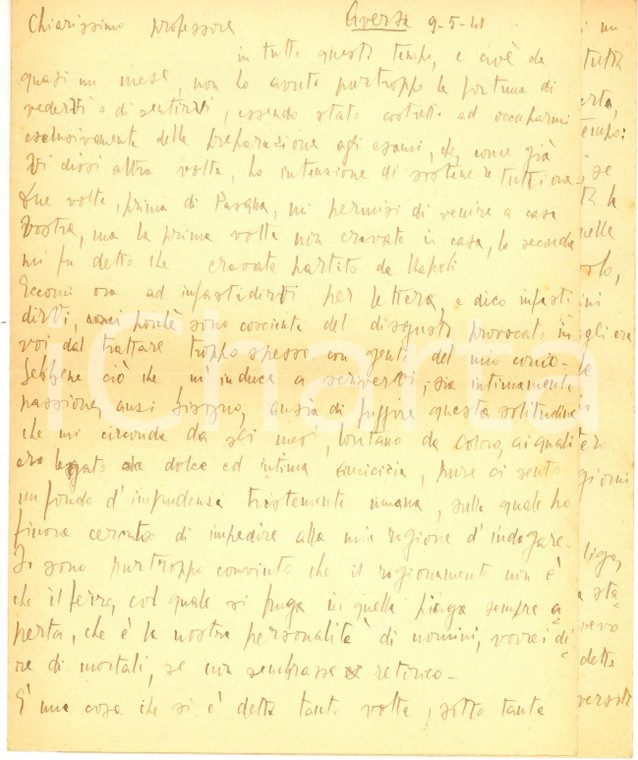 Aversa 9-5-41
Chiarissimo professore
in tutto questo tempo, e cioè da
quasi un mese, non ho avuto purtroppo la fortuna di
vedervi o di sentirvi, essendo stato costretto ad occuparmi
esclusivamente della preparazione agli esami, che, come già
Vi dissi altra volta, ho intenzione di sostenere
Due volte, prima di Pasqua, mi permisi di venire a casa
Vostra, ma la prima volta non eravate in casa, la seconda
mi fu detto che eravate partito da Napoli
Eccomi ora ad infastidirVi per lettera, e dico infasti
dirVi, poiché sono cosciente del disgusto provocato in
voi dal trattare troppo spesso con gente del mio conio-
Sebbene ciò che m'induce a scriverVi, sia intimamente
passione, anzi bisogno, ansia di questa solitudine
che mi circonda da sei mesi, lontano da coloro, ai quali
ero legato da dolce ed intima amicizia, pure ci sento
un fondo d'impudenza tristemente umana, sulla quale ho
finora cercato di impedire alla mia ragione d'indagare.
Io sono purtroppo convinto che il ragionamento non è
che il ferro, col quale si fruga in quella piaga sempre a
perta, che è la nostra personalità di uomini, vorrei di
re di mortali, se non sembrasse retorico-
È una cosa che si è detta tante volte, sotto tante
iCharta